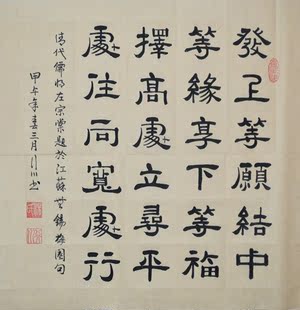 發上等願結中
等緣享下等福
擇高處立尋平
處住向寬處行
清代儒將左宗棠題於江蘇無錫梅園句
甲午年春三月行川書